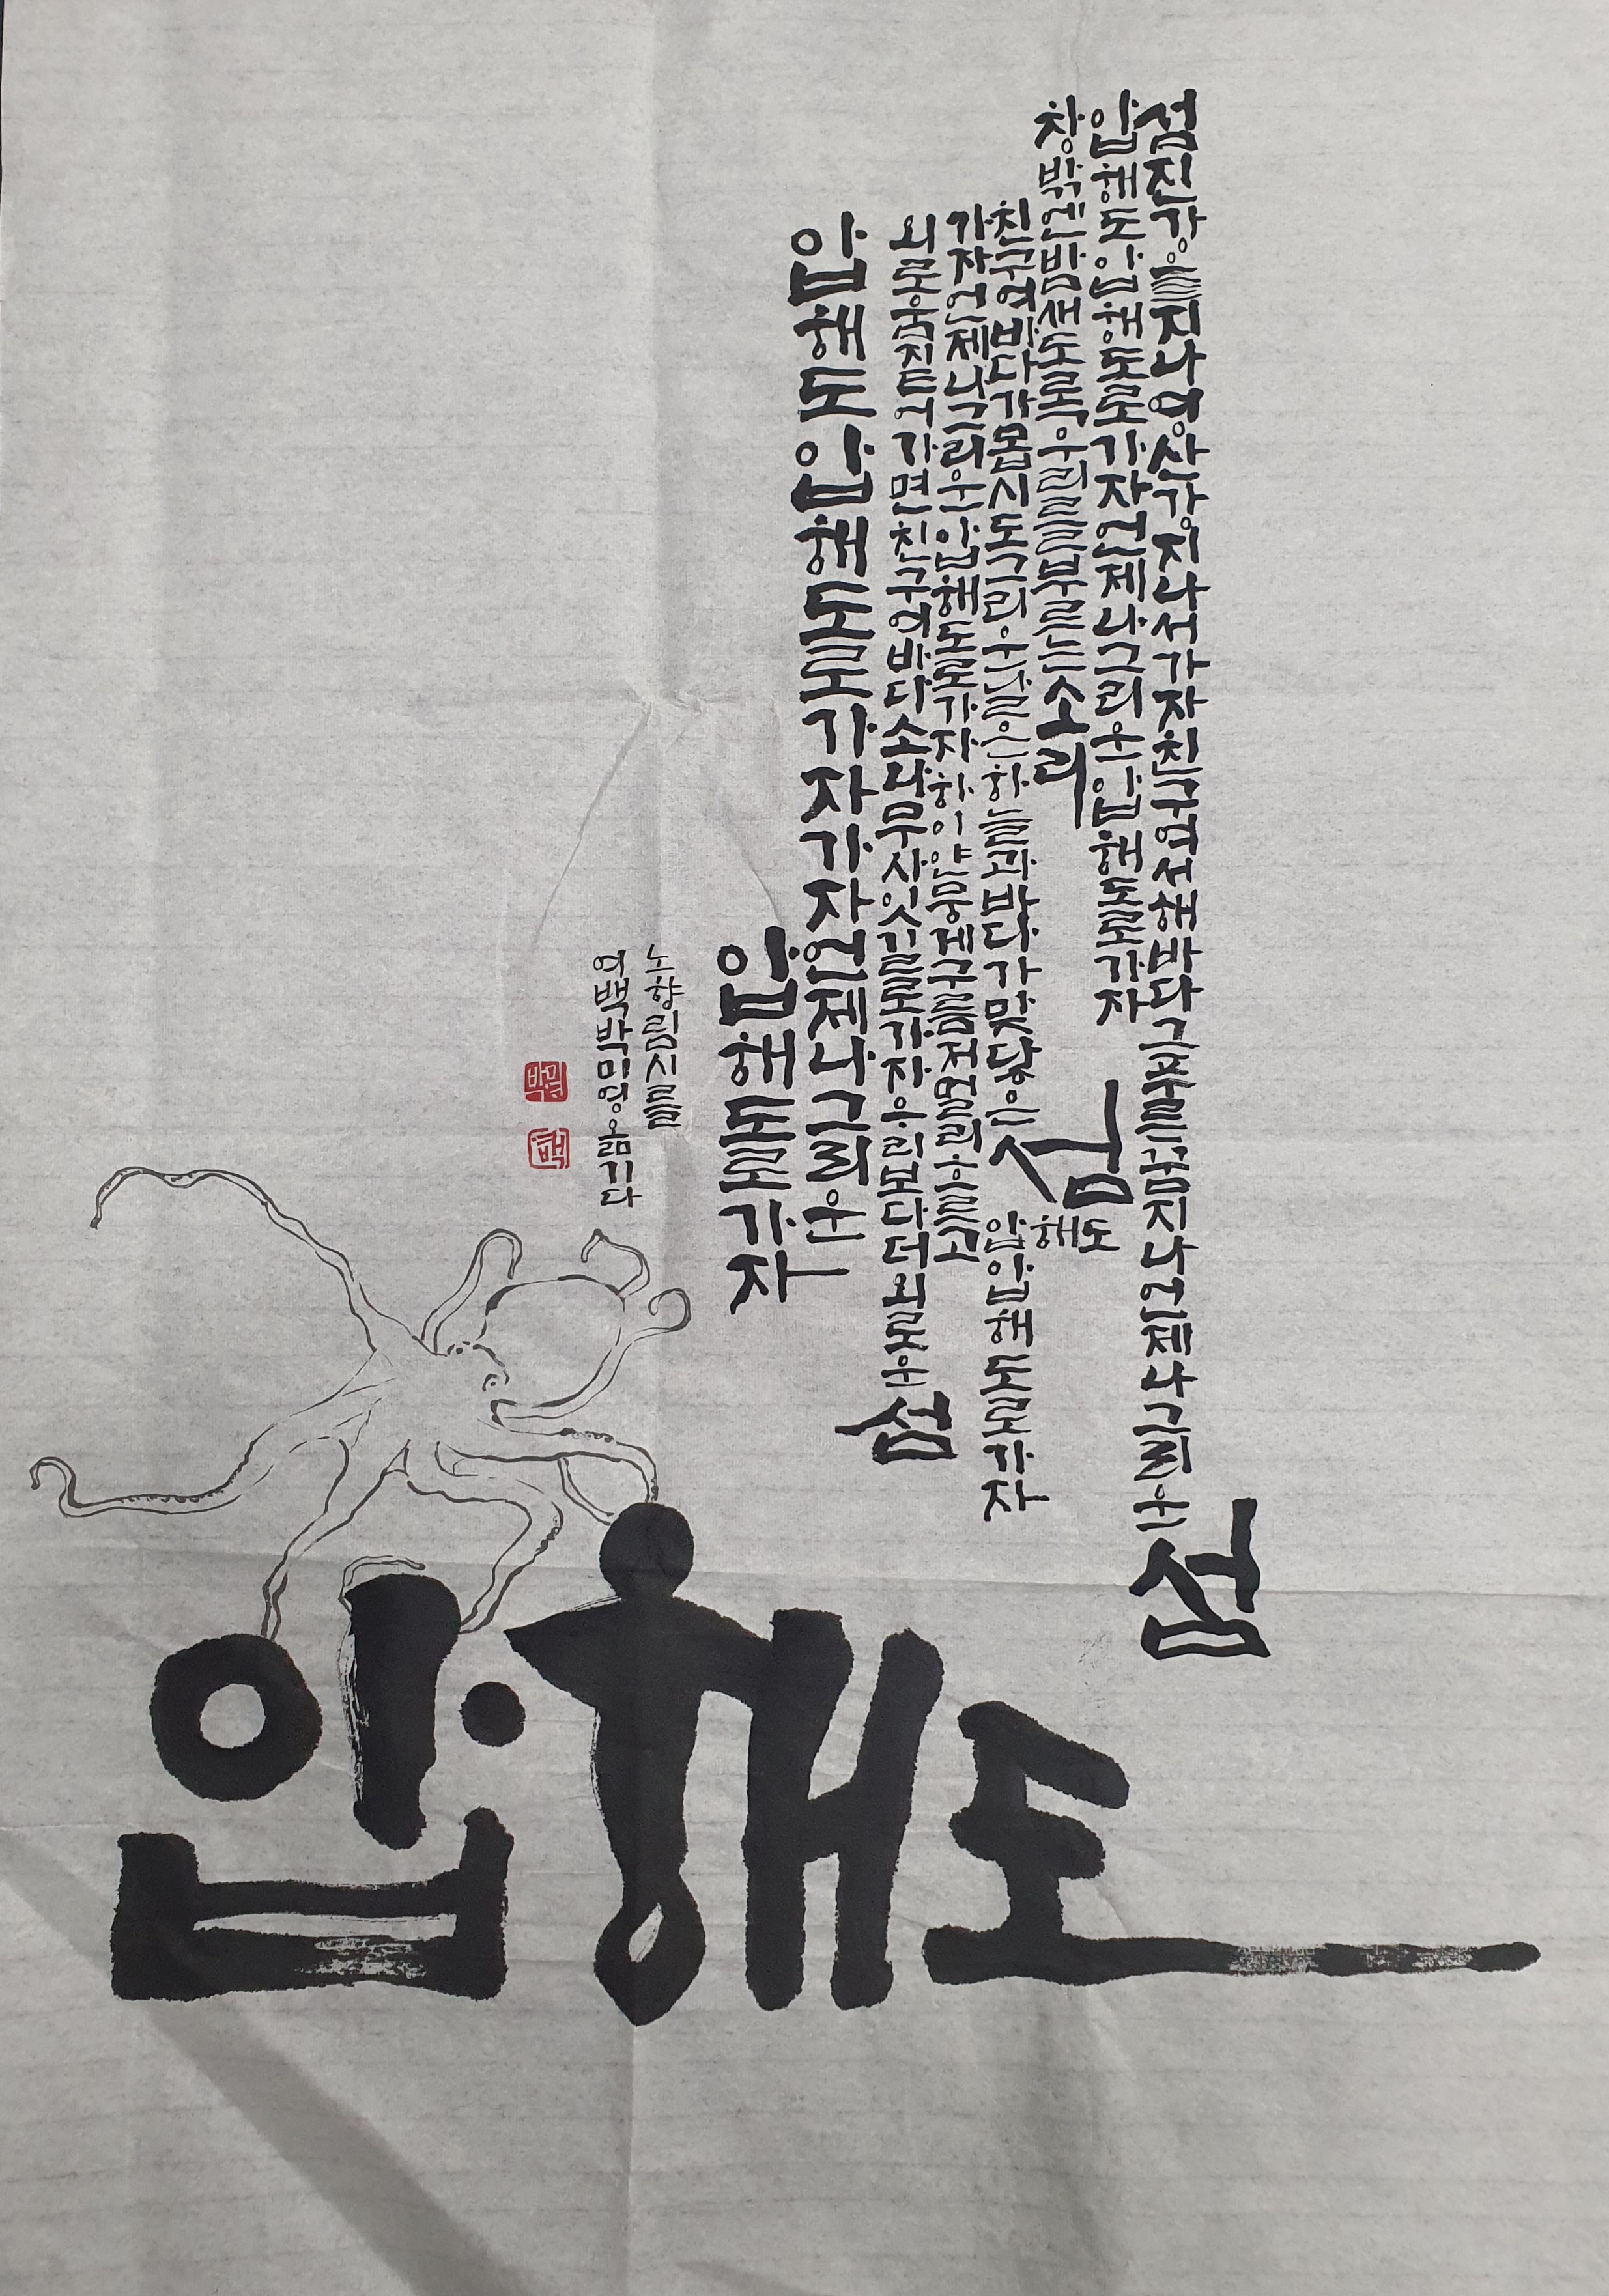 섬진강을지나영산강지나서가자친구여서해바다그푸른꿈지나언제나그리운섬
압해도압해도로가자언제나그리운압해도로가자
창밖엔밤새도록우리를부르는소리
친구여바다가몹시도그리운날은하늘과바다가맞닿은섬
압해도
압해도로가자
가자언제나그리운압해도로가자하이얀뭉게구름저멀리흐르고
외로움짙어가면친구여바다소나무사잇길로가자우리보다더외로운섬
압해도압해도로가자가자언제나그리운
압해도로가자
노향림시를
여백박미영옮기다
박미영
압해도